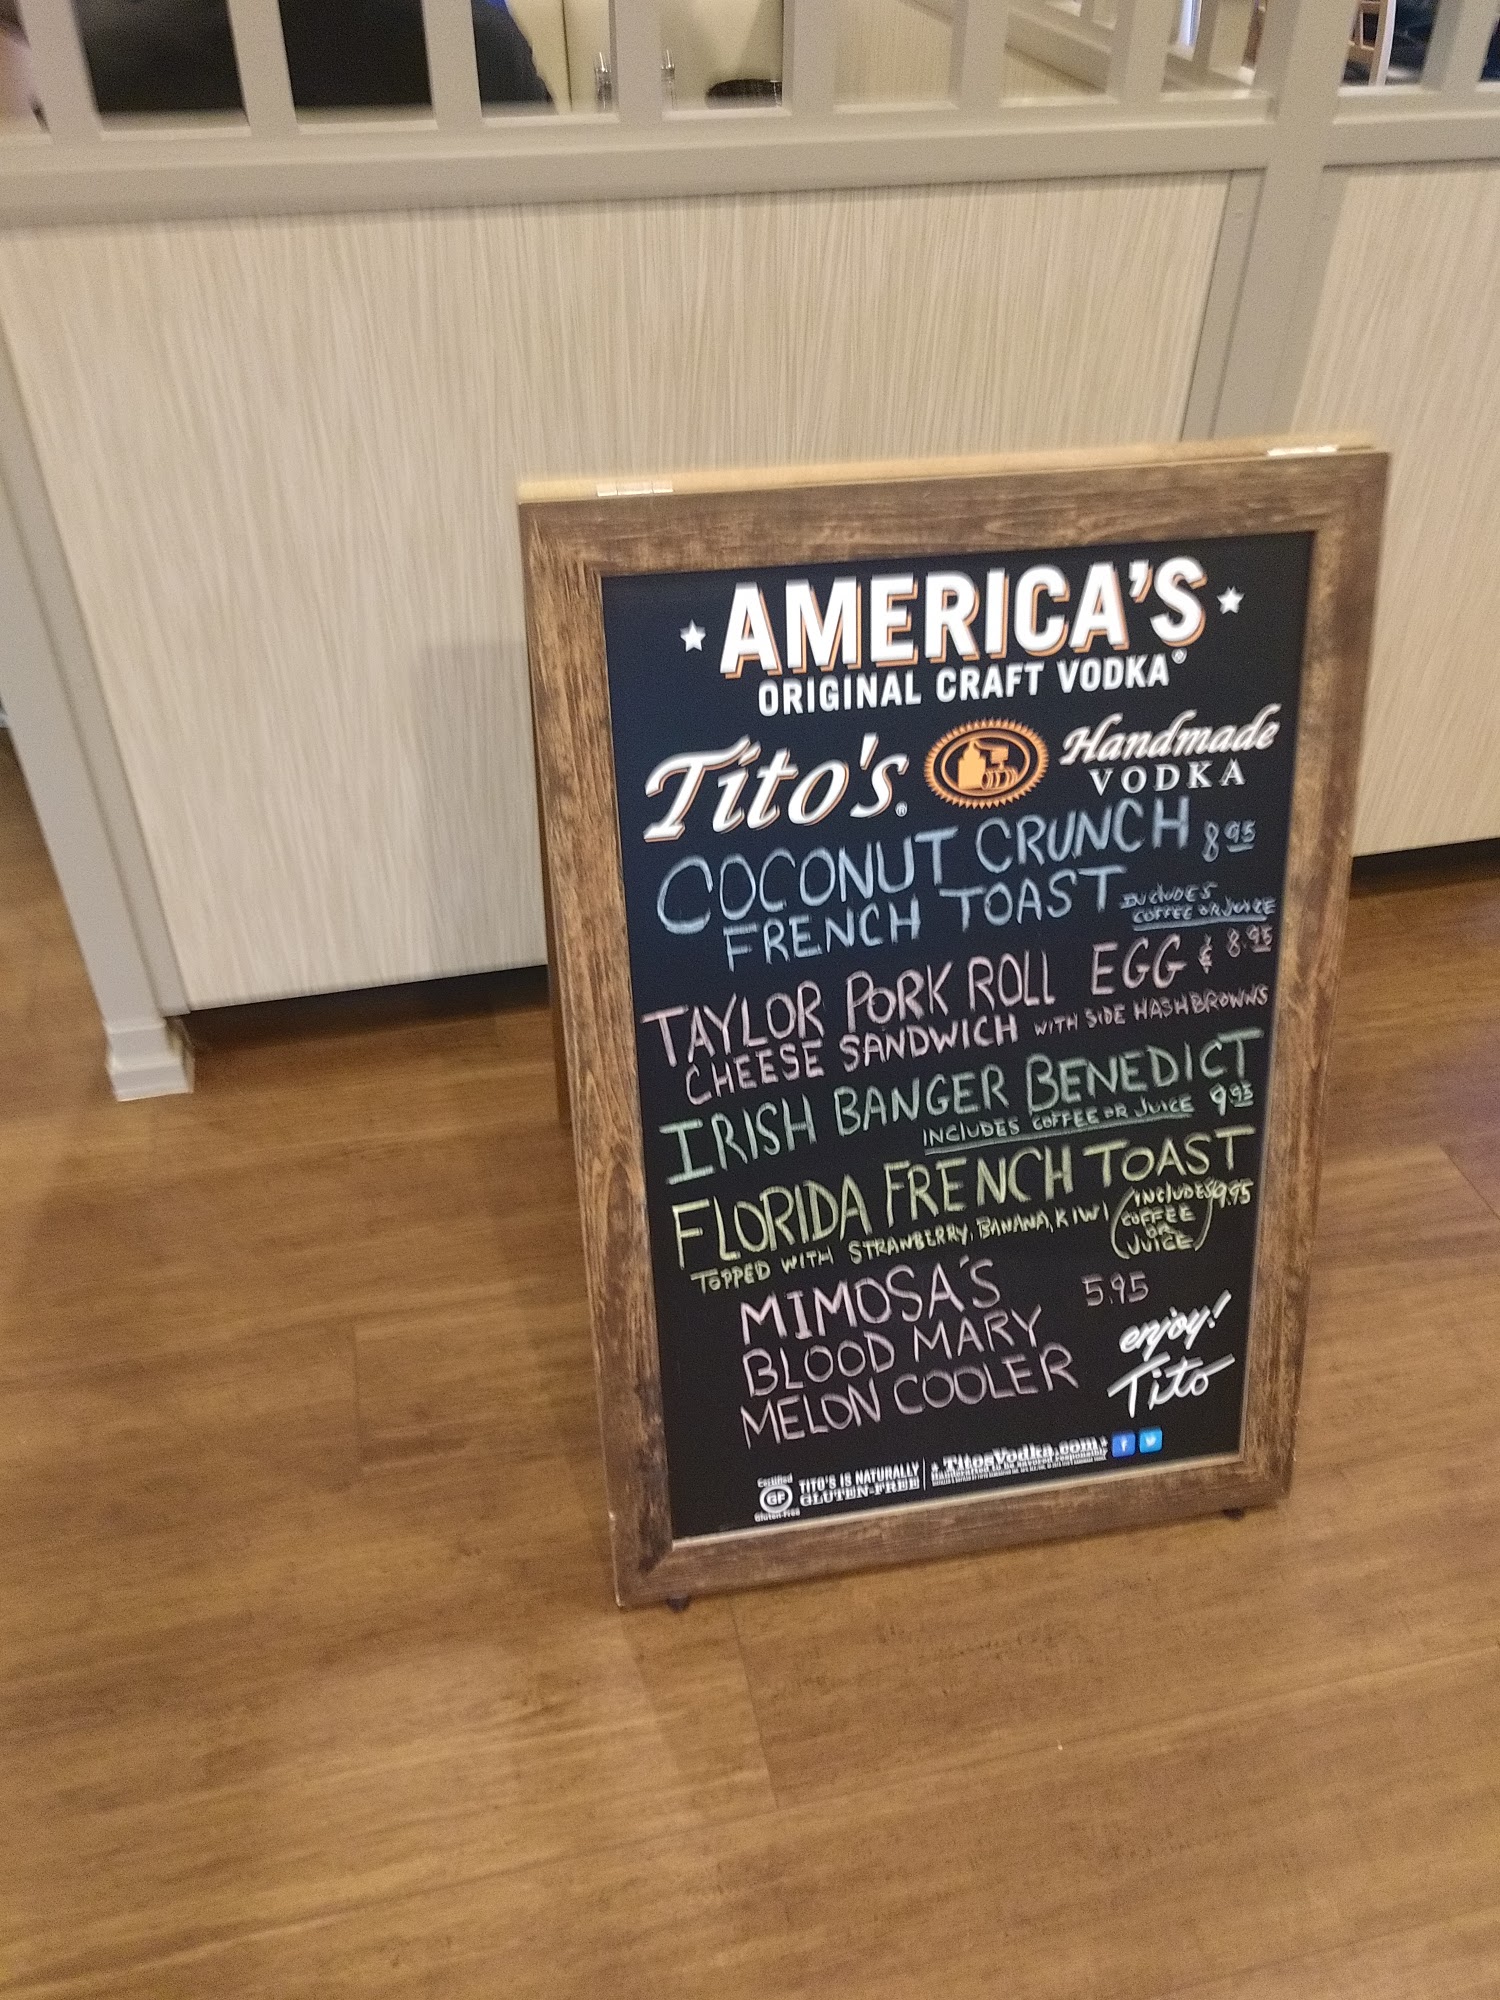 AMERICA'S
ORIGINAL CRAFT VODKA®
Tito's® Handmade
VODKA
COCONUT CRUNCH 8 95
FRENCH TOAST INCLUDES
COFFEE OR JUICE
TAYLOR PORK ROLL EGG & 8.95
CHEESE SANDWICH WITH SIDE HASHBROWNS
IRISH BANGER BENEDICT
INCLUDES COFFEE OR JUICE 9 95
FLORIDA FRENCH TOAST
TOPPED WITH STRAWBERRY, BANANA, KIWI (INCLUDES COFFEE OR JUICE) 9.95
MIMOSA'S 5.95
BLOOD MARY
MELON COOLER
enjoy!
Tito
Certified
GF
Gluten-Free
TITO'S IS NATURALLY
GLUTEN-FREE
TitosVodka.com
Handcrafted to be savored responsibly